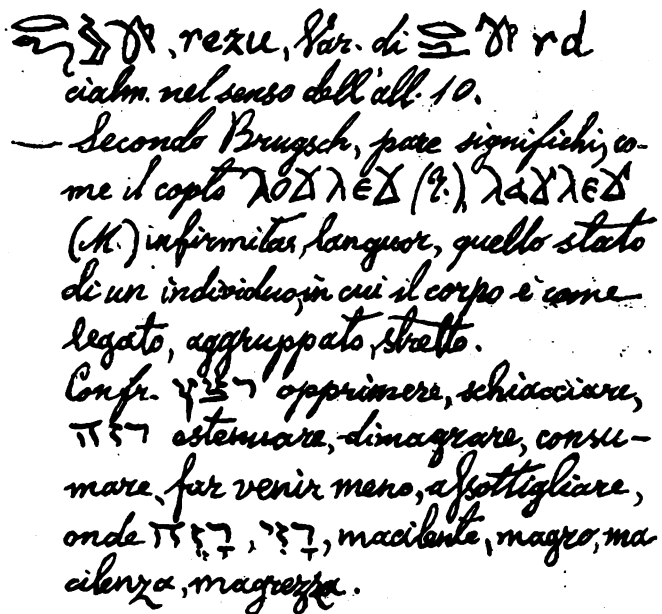 , rezu, Var. di rd
cialm. nel senso dell'all. 10.
— Secondo Brugsch, pare significhi, co-
me il copto ⲗⲟϫⲗⲉϫ ⲗⲁϫⲗⲉϫ
(M.) infirmitas, languor, quello stato
di un individuo, in cui il corpo è come
legato, aggruppato, stretto.
Confr. רצץ opprimere, schiacciare,
רזה estenuare, dimagrare, consu-
mare, far venir meno, assottigliare,
onde רָזֶה, רָזִי, macilente, magro, ma-
cilenza, magrezza.